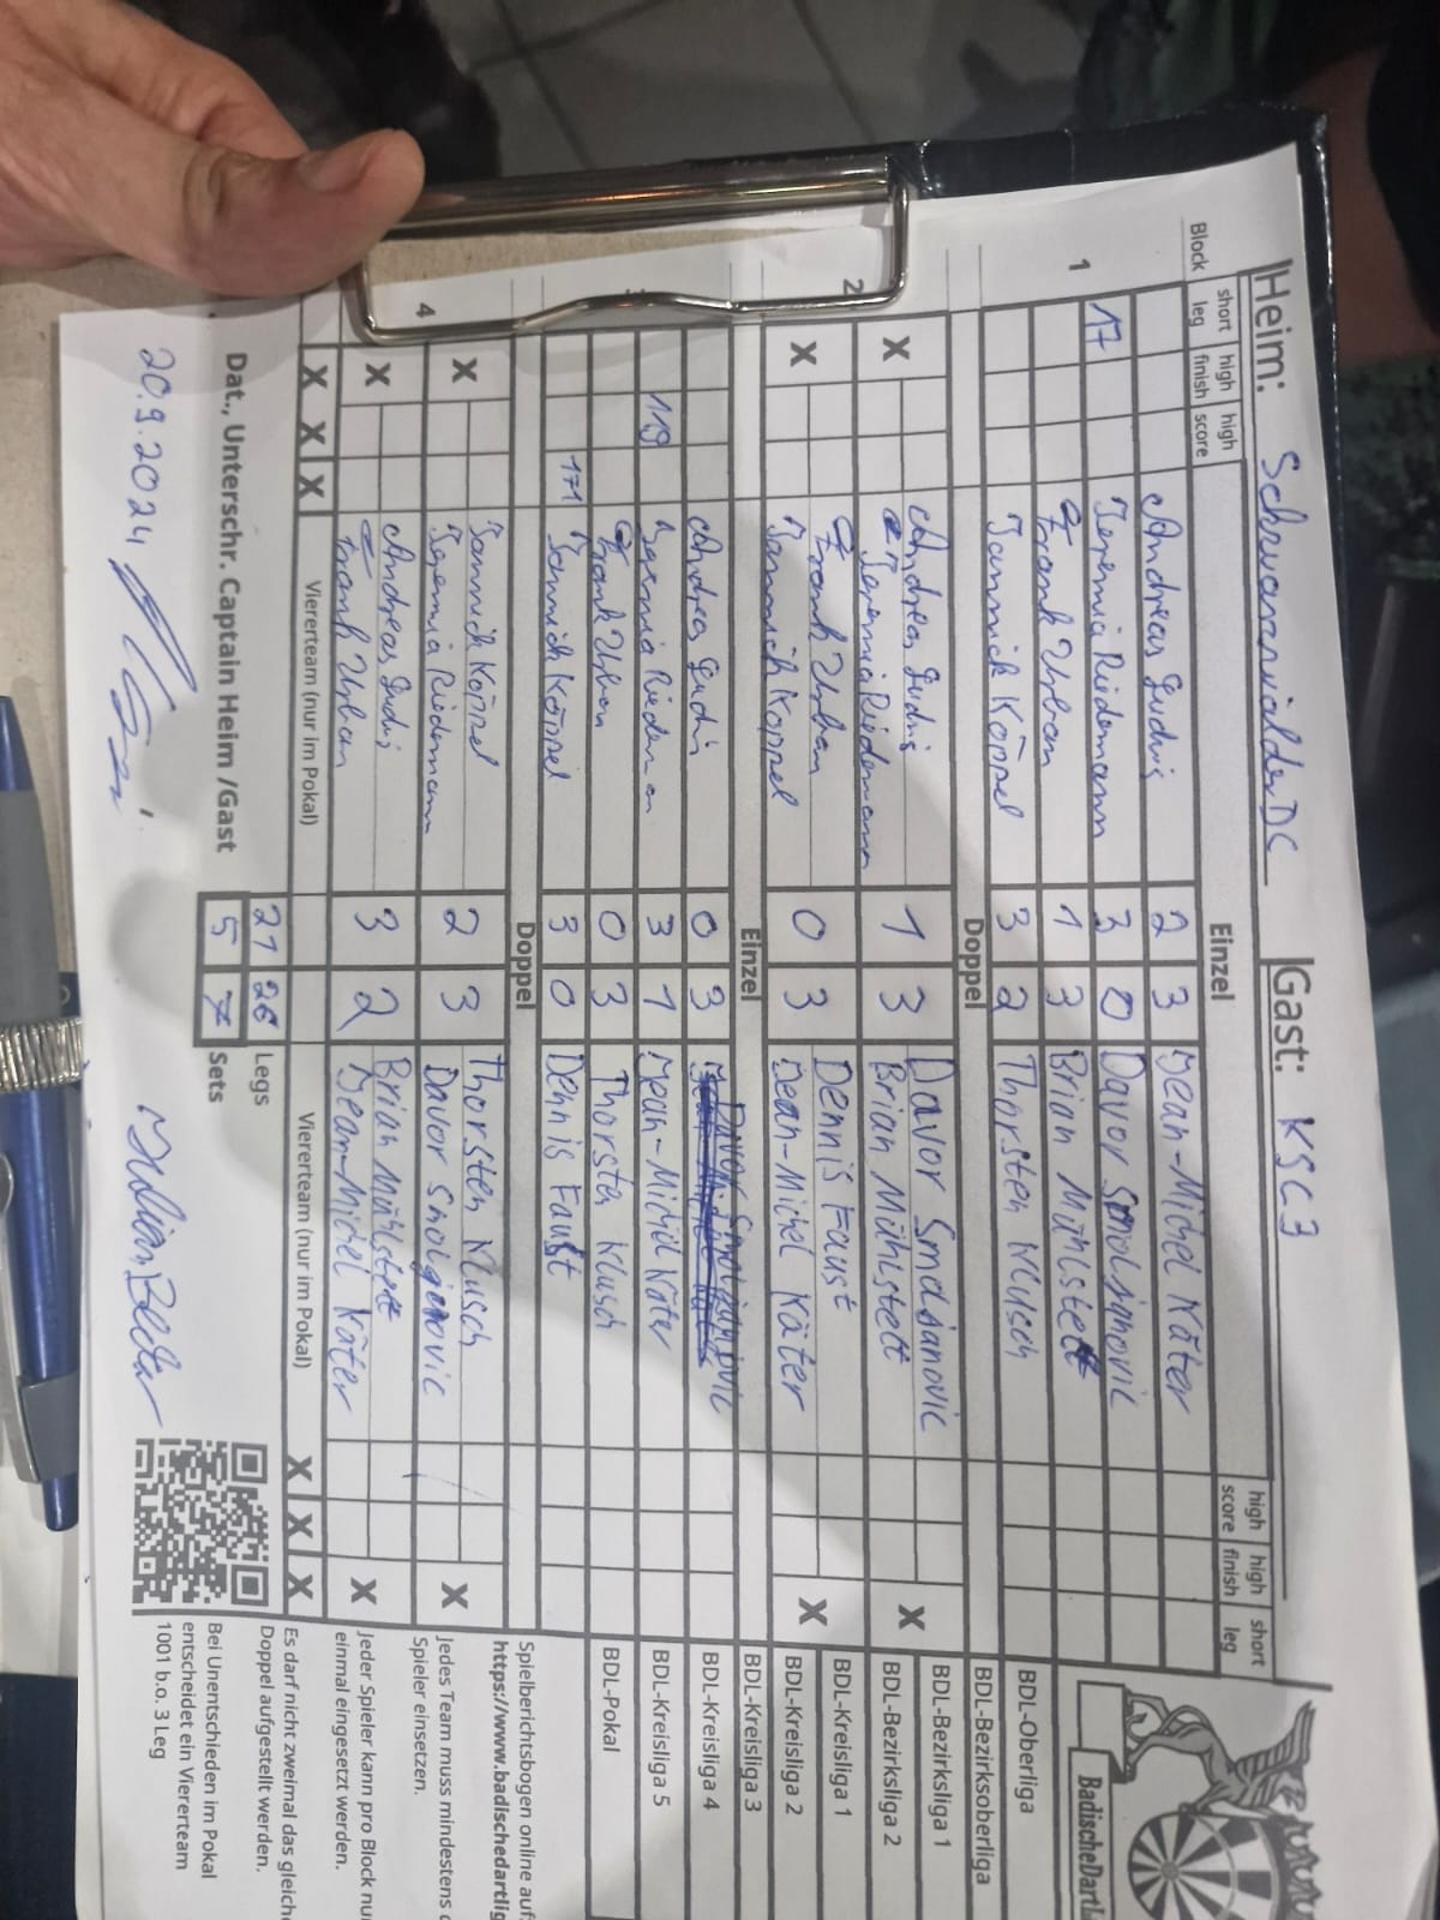 Heim: Schwarzwälder DC Gast: KSC 3
Block short leg high finish high score Einzel high score high finish short leg
1 Andreas Ludwig 2 3 Jean-Michel Käter
17 Jeremia Riedemann 3 0 Davor Smoljanovic
Frank Urban 1 3 Brian Mühlstett
Jannick Köppel 3 2 Thorsten Klusch
Doppel
2 X Andreas Ludwig 1 3 Davor Smoljanovic X
Jeremia Riedemann Brian Mühlstett
X Frank Urban 0 3 Dennis Faust X
Jannick Köppel Jean-Michel Käter
Einzel
Andreas Ludwig 0 3 Davor Smoljanovic
119 Jeremia Riedemann 3 1 Jean-Michel Käter
Frank Urban 0 3 Thorsten Klusch
171 Jannick Köppel 3 0 Dennis Faust
Doppel
4 X Jannick Köppel 2 3 Thorsten Klusch X
Jeremia Riedemann Davor Smoljanovic
X Andreas Ludwig 3 2 Brian Mühlstett X
Frank Urban Jean-Michel Käter
X X X Vierterteam (nur im Pokal) Vierterteam (nur im Pokal) X X X
21 26 Legs
Dat., Unterschr. Captain Heim /Gast 5 7 Sets
20.9.2024
BadischeDartL
BDL-Oberliga
BDL-Bezirksoberliga
BDL-Bezirksliga 1
BDL-Bezirksliga 2
BDL-Kreisliga 1
BDL-Kreisliga 2
BDL-Kreisliga 3
BDL-Kreisliga 4
BDL-Kreisliga 5
BDL-Pokal
Spielberichtsbogen online auf:
https://www.badischedartlig
Jedes Team muss mindestens
Spieler einsetzen.
Jeder Spieler kann pro Block nu
einmal eingesetzt werden.
Es darf nicht zweimal das gleiche
Doppel aufgestellt werden.
Bei Unentschieden im Pokal
entscheidet ein Viererteam
1001 b.o. 3 Leg